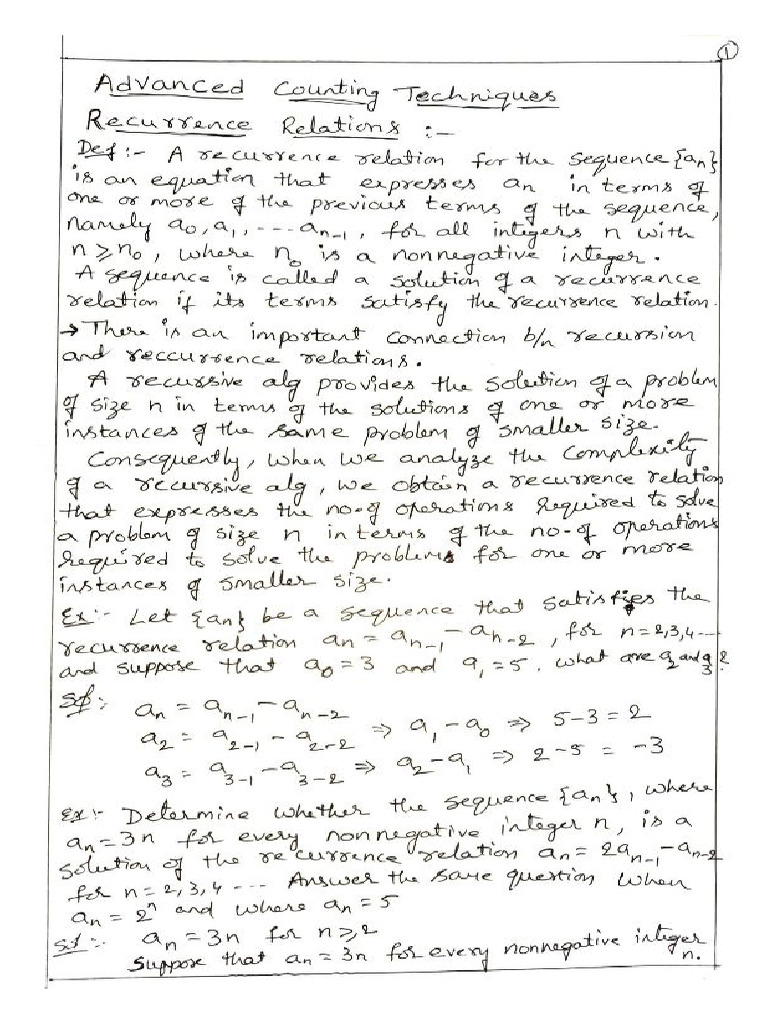 1
Advanced Counting Techniques
Recurrence Relations :-
Def :- A recurrence relation for the sequence {an}
is an equation that expresses an in terms of
one or more of the previous terms of the sequence,
namely a0, a1, --- an-1, for all integers n with
n ≥ n0, where n0 is a nonnegative integer.
A sequence is called a solution of a recurrence
relation if its terms satisfy the recurrence relation.
→ There is an important connection b/n recursion
and reccurrence relations.
A recursive alg provides the solution of a problem
of size n in terms of the solutions of one or more
instances of the same problem of smaller size.
Consequently, when we analyze the complexity
of a recursive alg, we obtain a recurrence relation
that expresses the no-of operations required to solve
a problem of size n in terms of the no-of operations
required to solve the problems for one or more
instances of smaller size.
Ex:- Let {an} be a sequence that satisfies the
recurrence relation an = an-1 - an-2, for n=2,3,4---
and suppose that a0 = 3 and a1 = 5. what are a2 and a3?
Sol:- an = an-1 - an-2
a2 = a2-1 - a2-2 ⇒ a1 - a0 ⇒ 5-3 = 2
a3 = a3-1 - a3-2 ⇒ a2 - a1 ⇒ 2-5 = -3
Ex:- Determine whether the sequence {an}, where
an = 3n for every nonnegative integer n, is a
solution of the recurrence relation an = 2an-1 - an-2
for n = 2,3,4 --- Answer the same question when
an = 2ⁿ and where an = 5
Sol:- an = 3n for n ≥ 2
Suppose that an = 3n for every nonnegative integer
n.